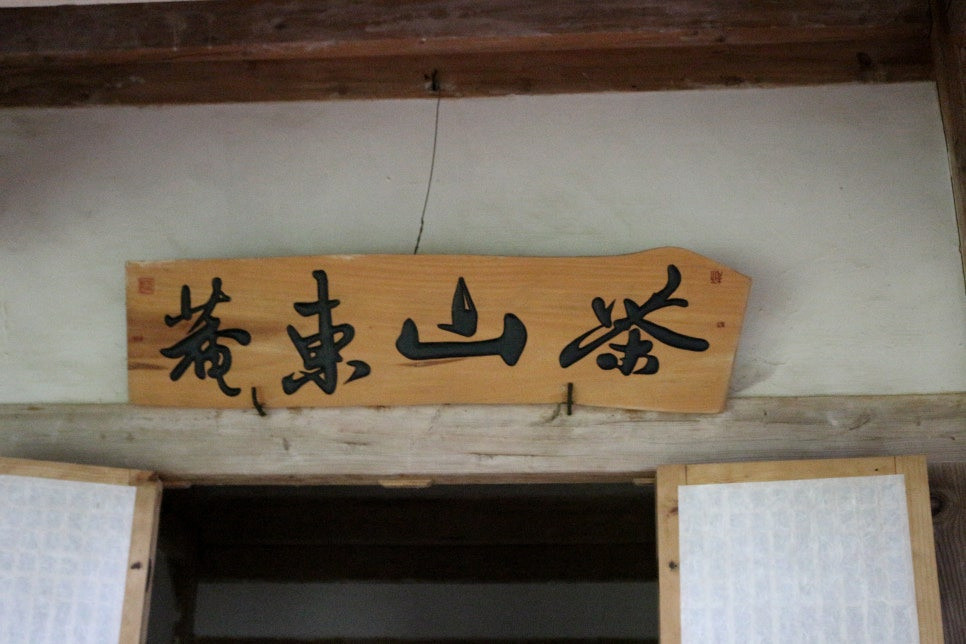 茶山東菴